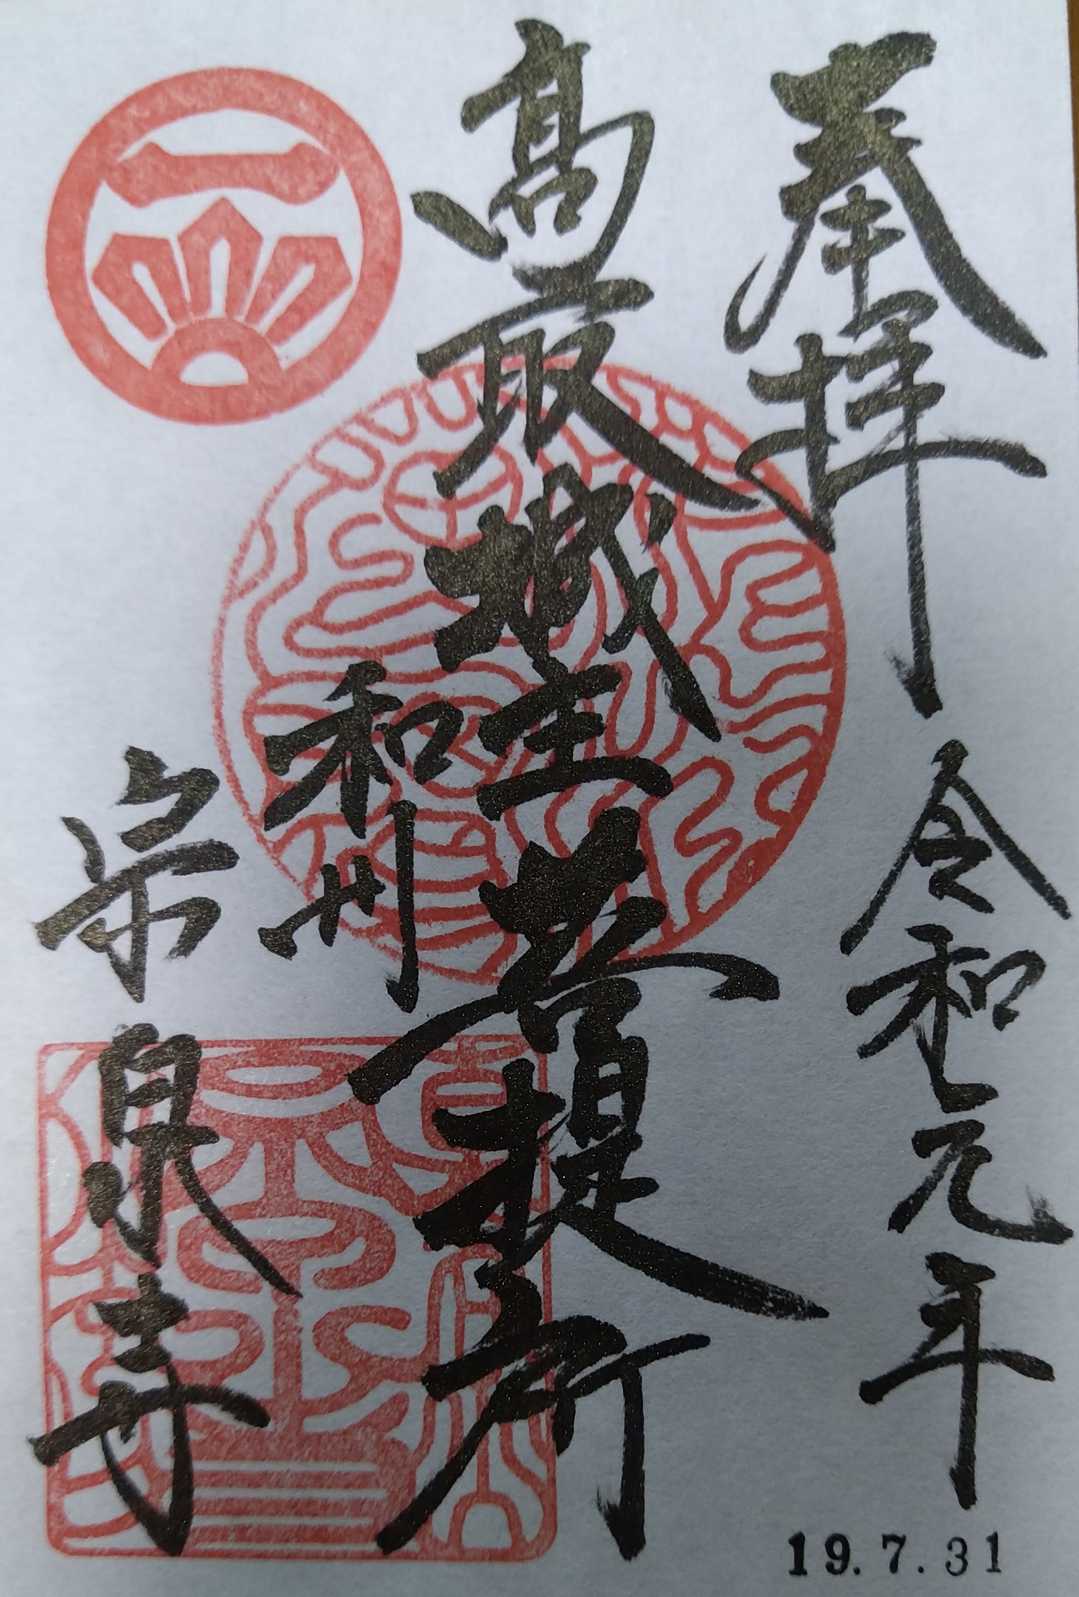 奉拝
令和元年
19.7.31
髙取城主菩提所
和州
宗泉寺